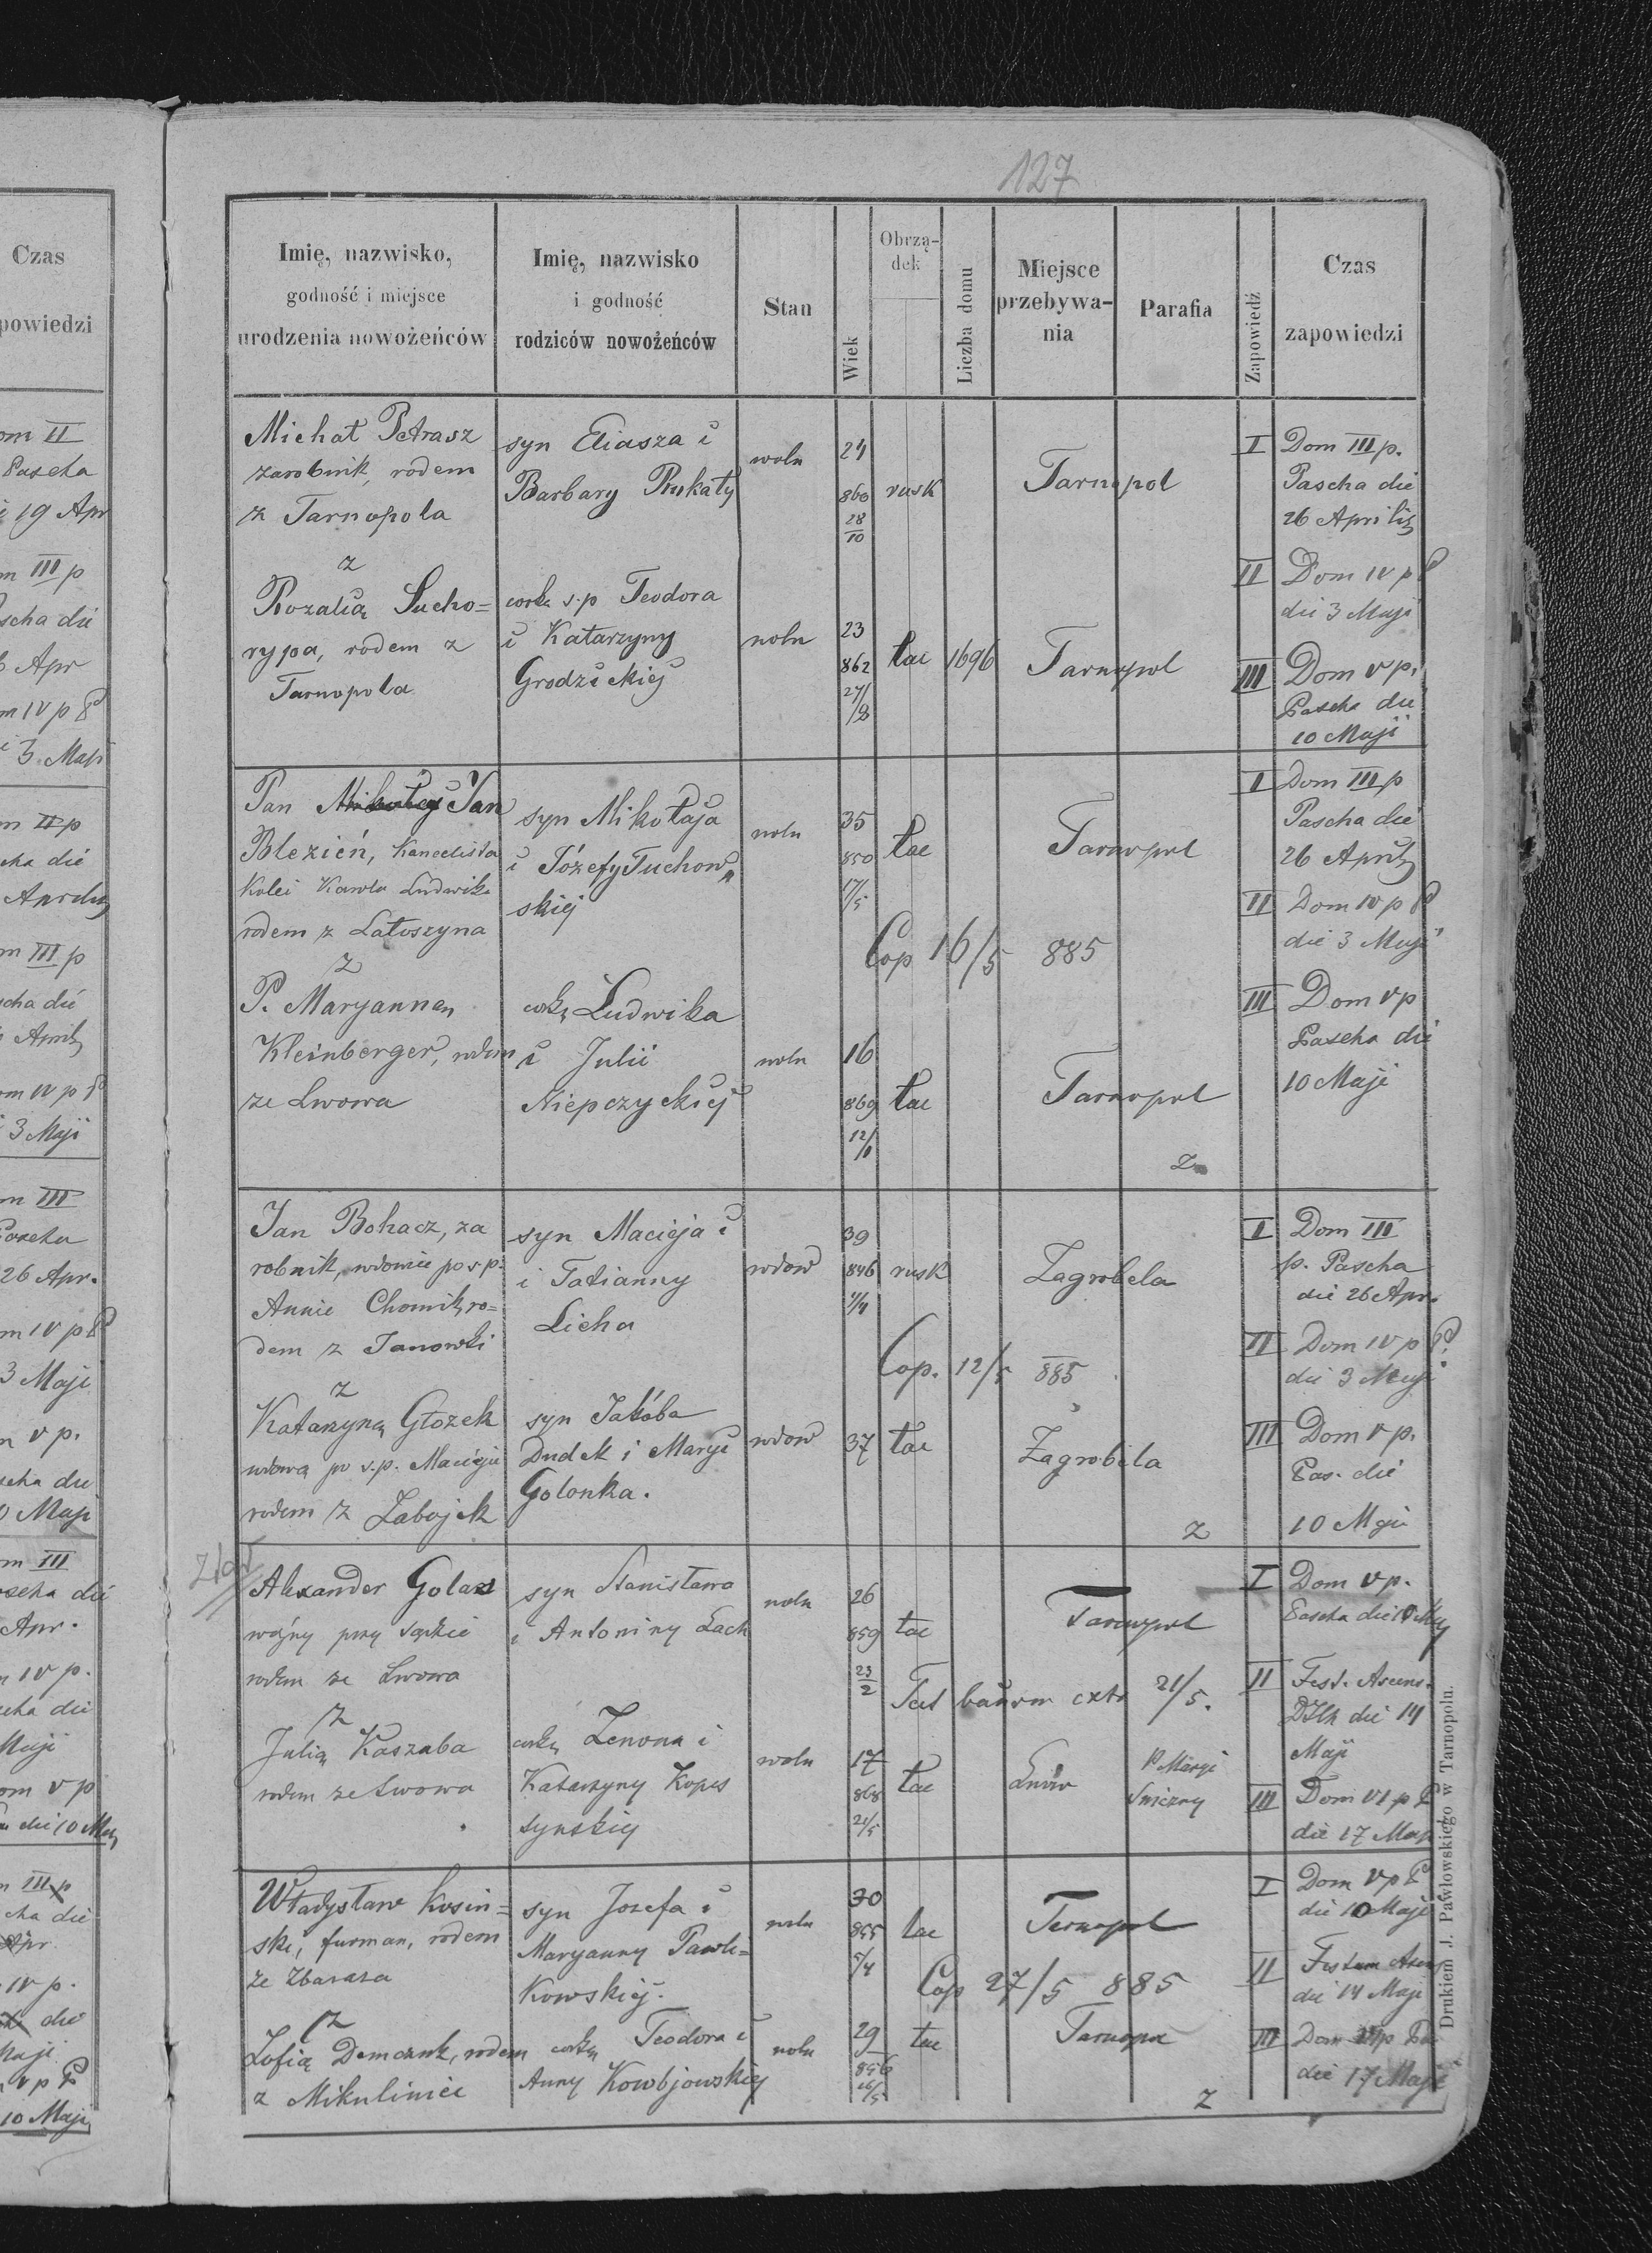 127
Czas
powiedzi
om II
Pascha
i 19 Apr
m III p
scha die
Apr
m IV p P
3 Maji
m II p
cha die
Aprilis
m III p
scha die
Aprilis
om IV p P
3 Maji
m III
Pascha
26 Apr.
m IV p P
3 Maji
m V p.
scha die
0 Maji
om III
ascha die
Apr.
m IV p.
scha die
Maji
om V p
die 10 Maj
m III p
cha die
Apr
IV p.
die
Maji
V p P
10 Maji
Imię, nazwisko,
godność i miejsce
urodzenia nowożeńców
Imię, nazwisko
i godność
rodziców nowożeńców
Stan
Wiek
Obrzą-
dek
Liczba domu
Miejsce
przebywa-
nia
Parafia
Zapowiedź
Czas
zapowiedzi
Michał Petrasz
zarobnik, rodem
z Tarnopola
syn Eliasza i
Barbary Prukały
woln
24
860
28/10
rusk
Tarnopol
I Dom III p.
Pascha die
26 Aprilis
z
Rozalią Sucho=
rypa, rodem z
Tarnopola
corka s.p Teodora
i Katarzyny
Grodzickiej
woln
23
862
27/8
łac
1696
Tarnopol
II Dom IV p P
die 3 Maji
III Dom V p.
Pascha die
10 Maji
Pan Mikołaj Jan
Blezień, Kancelista
kolei Karola Ludwika
rodem z Latoszyna
syn Mikołaja
i Józefy Tuchow„
skiej
woln
35
850
17/5
łac
Tarnopol
Cop 16/5 885
I Dom III p
Pascha die
26 Aprilis
II Dom IV p P
die 3 Maji
z
P. Maryannen
Kleinberger, rodem
ze Lwowa
corką Ludwika
i Julii
Niepczyckiej
woln
16
869
łac
Tarnopol
z
III Dom V p
Pascha die
10 Maji
Jan Bohacz, za
robnik, wdowiec po s.p.
Annie Chomik, ro=
dem z Janowki
syn Macieja i
i Tatianny
Licha
wdow
39
846
rusk
Zagrobela
Cop. 12/5 885
I Dom III
p. Pascha
die 26 Apr.
II Dom IV p P.
die 3 Maji
z
Katarzyną Głozek
wdową po s.p. Macieju
rodem z Zabojek
syn Jakóba
Dudek i Maryi
Golonka.
wdow
37
łac
Zagrobela
z
III Dom V p.
Pas. die
10 Maji
Alexander Golaz
wóźny przy sądzie
rodem ze Lwowa
syn Stanisława
i Antoniny Lach
woln
26
859
23/2
łac
Tarnopol
21/5.
I Dom V p.
Pascha die 10 Maj
II Fest. Ascens.
die 14
Maji
z
Julią Kaszuba
rodem ze Lwowa
corką Zenona i
Katarzyny Kopes
synskiej
woln
17
868
21/5
łac
Lwów
P. Maryi
Snieżny
III Dom VI p P
die 17 Maji
Władysław Kosin=
ski, furman, rodem
ze Zbaraza
syn Jozefa i
Maryanny Pawli=
kowskiej.
woln
30
855
5/4
łac
Ternopol
Cop 27/5 885
I Dom V p P
die 10 Maji
II Festum Ascens
die 14 Maji
z
Zofią Demczuk, rodem
z Mikuliniec
corką Teodora i
Anny Kowbjowskiej
woln
29
856
16/5
łac
Tarnopol
z
III Dom VI p Pa
die 17 Maji
Drukiem J. Pawłowskiego w Tarnopolu.